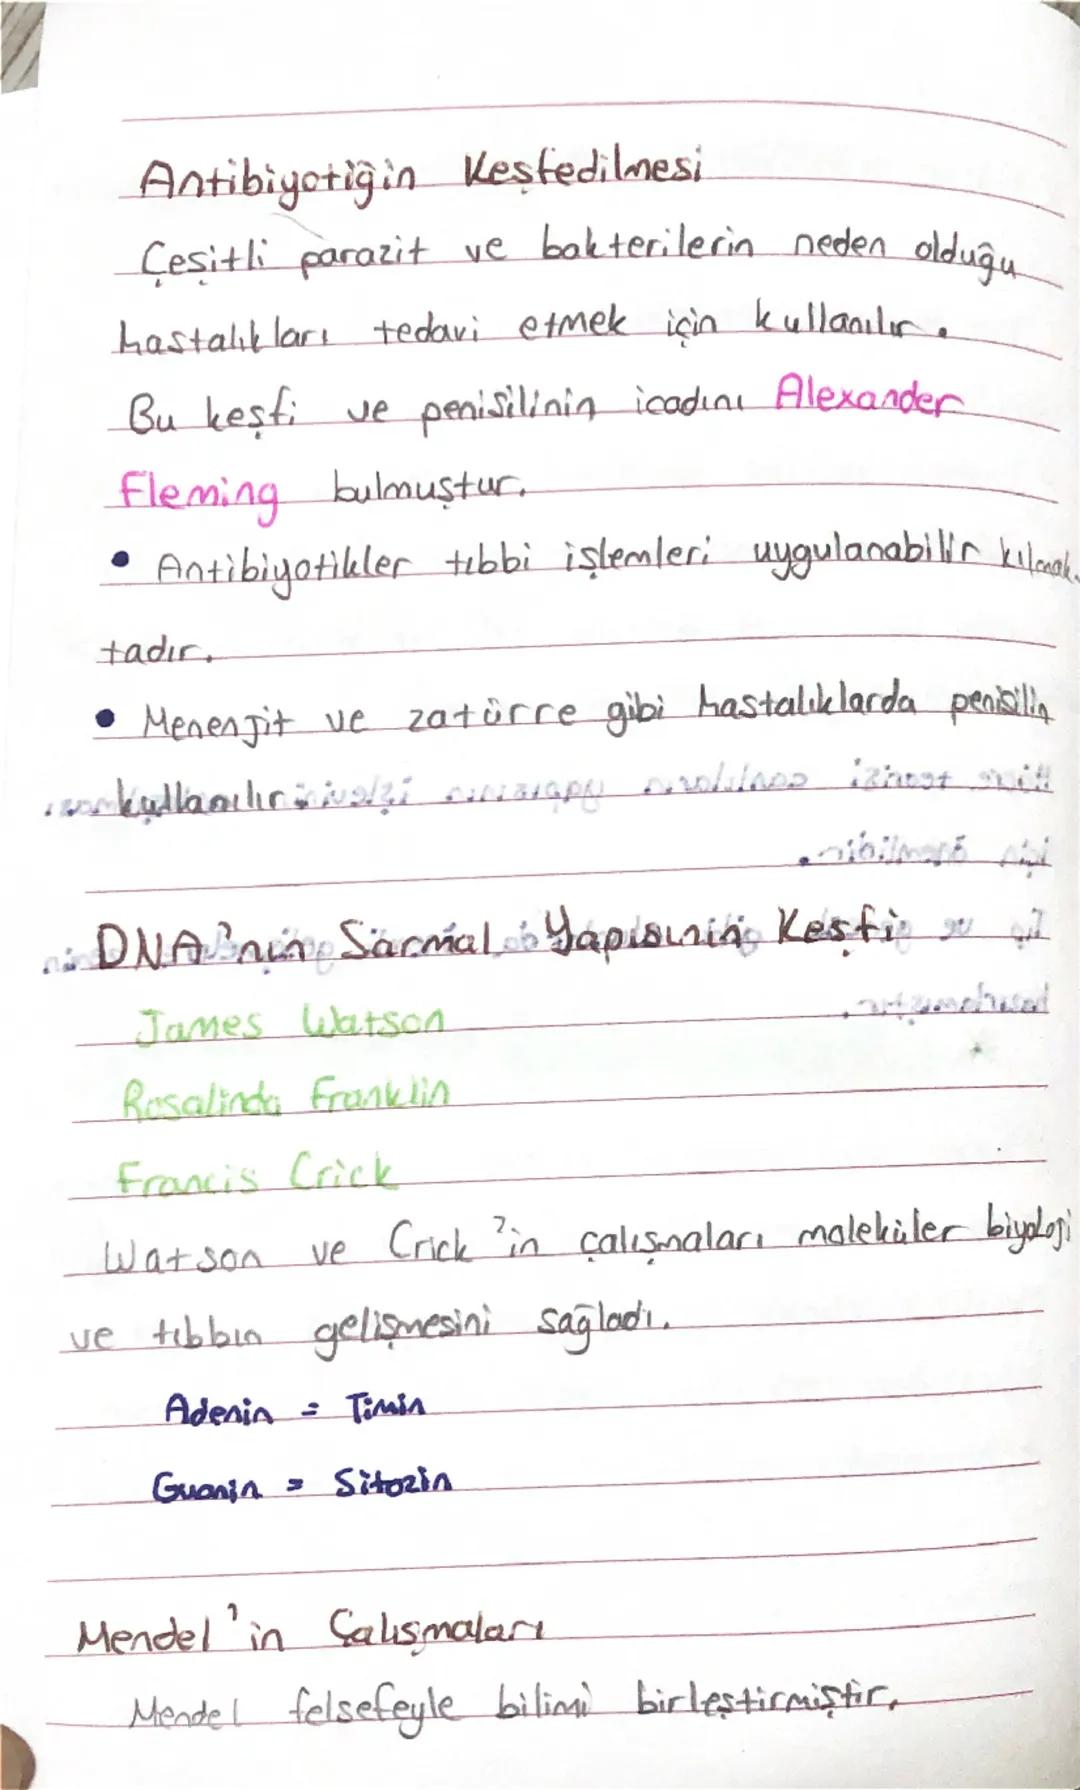 Antibiyotiğin Keşfedilmesi
Çeşitli parazit ve bakterilerin neden olduğu
hastalıkları tedavi etmek için kullanılır.
Bu keşfi ve penisilinin icadını Alexander
Fleming bulmuştur.
• Antibiyotikler tıbbi işlemleri uygulanabilir kılmak-
tadır.
• Menenjit ve zatürre gibi hastalıklarda penisilin
kullanılır
DNA'nın Sarmal Yapısının Keşfi
James Watson
Rosalinda Franklin
Francis Crick
Watson ve Crick'in çalışmaları maleküler biyoloji
ve tıbbın gelişmesini sağladı.
Adenin = Timin
Guanin = Sitozin
Mendel'in Çalışmaları
Mendel felsefeyle bilimi birleştirmiştir.